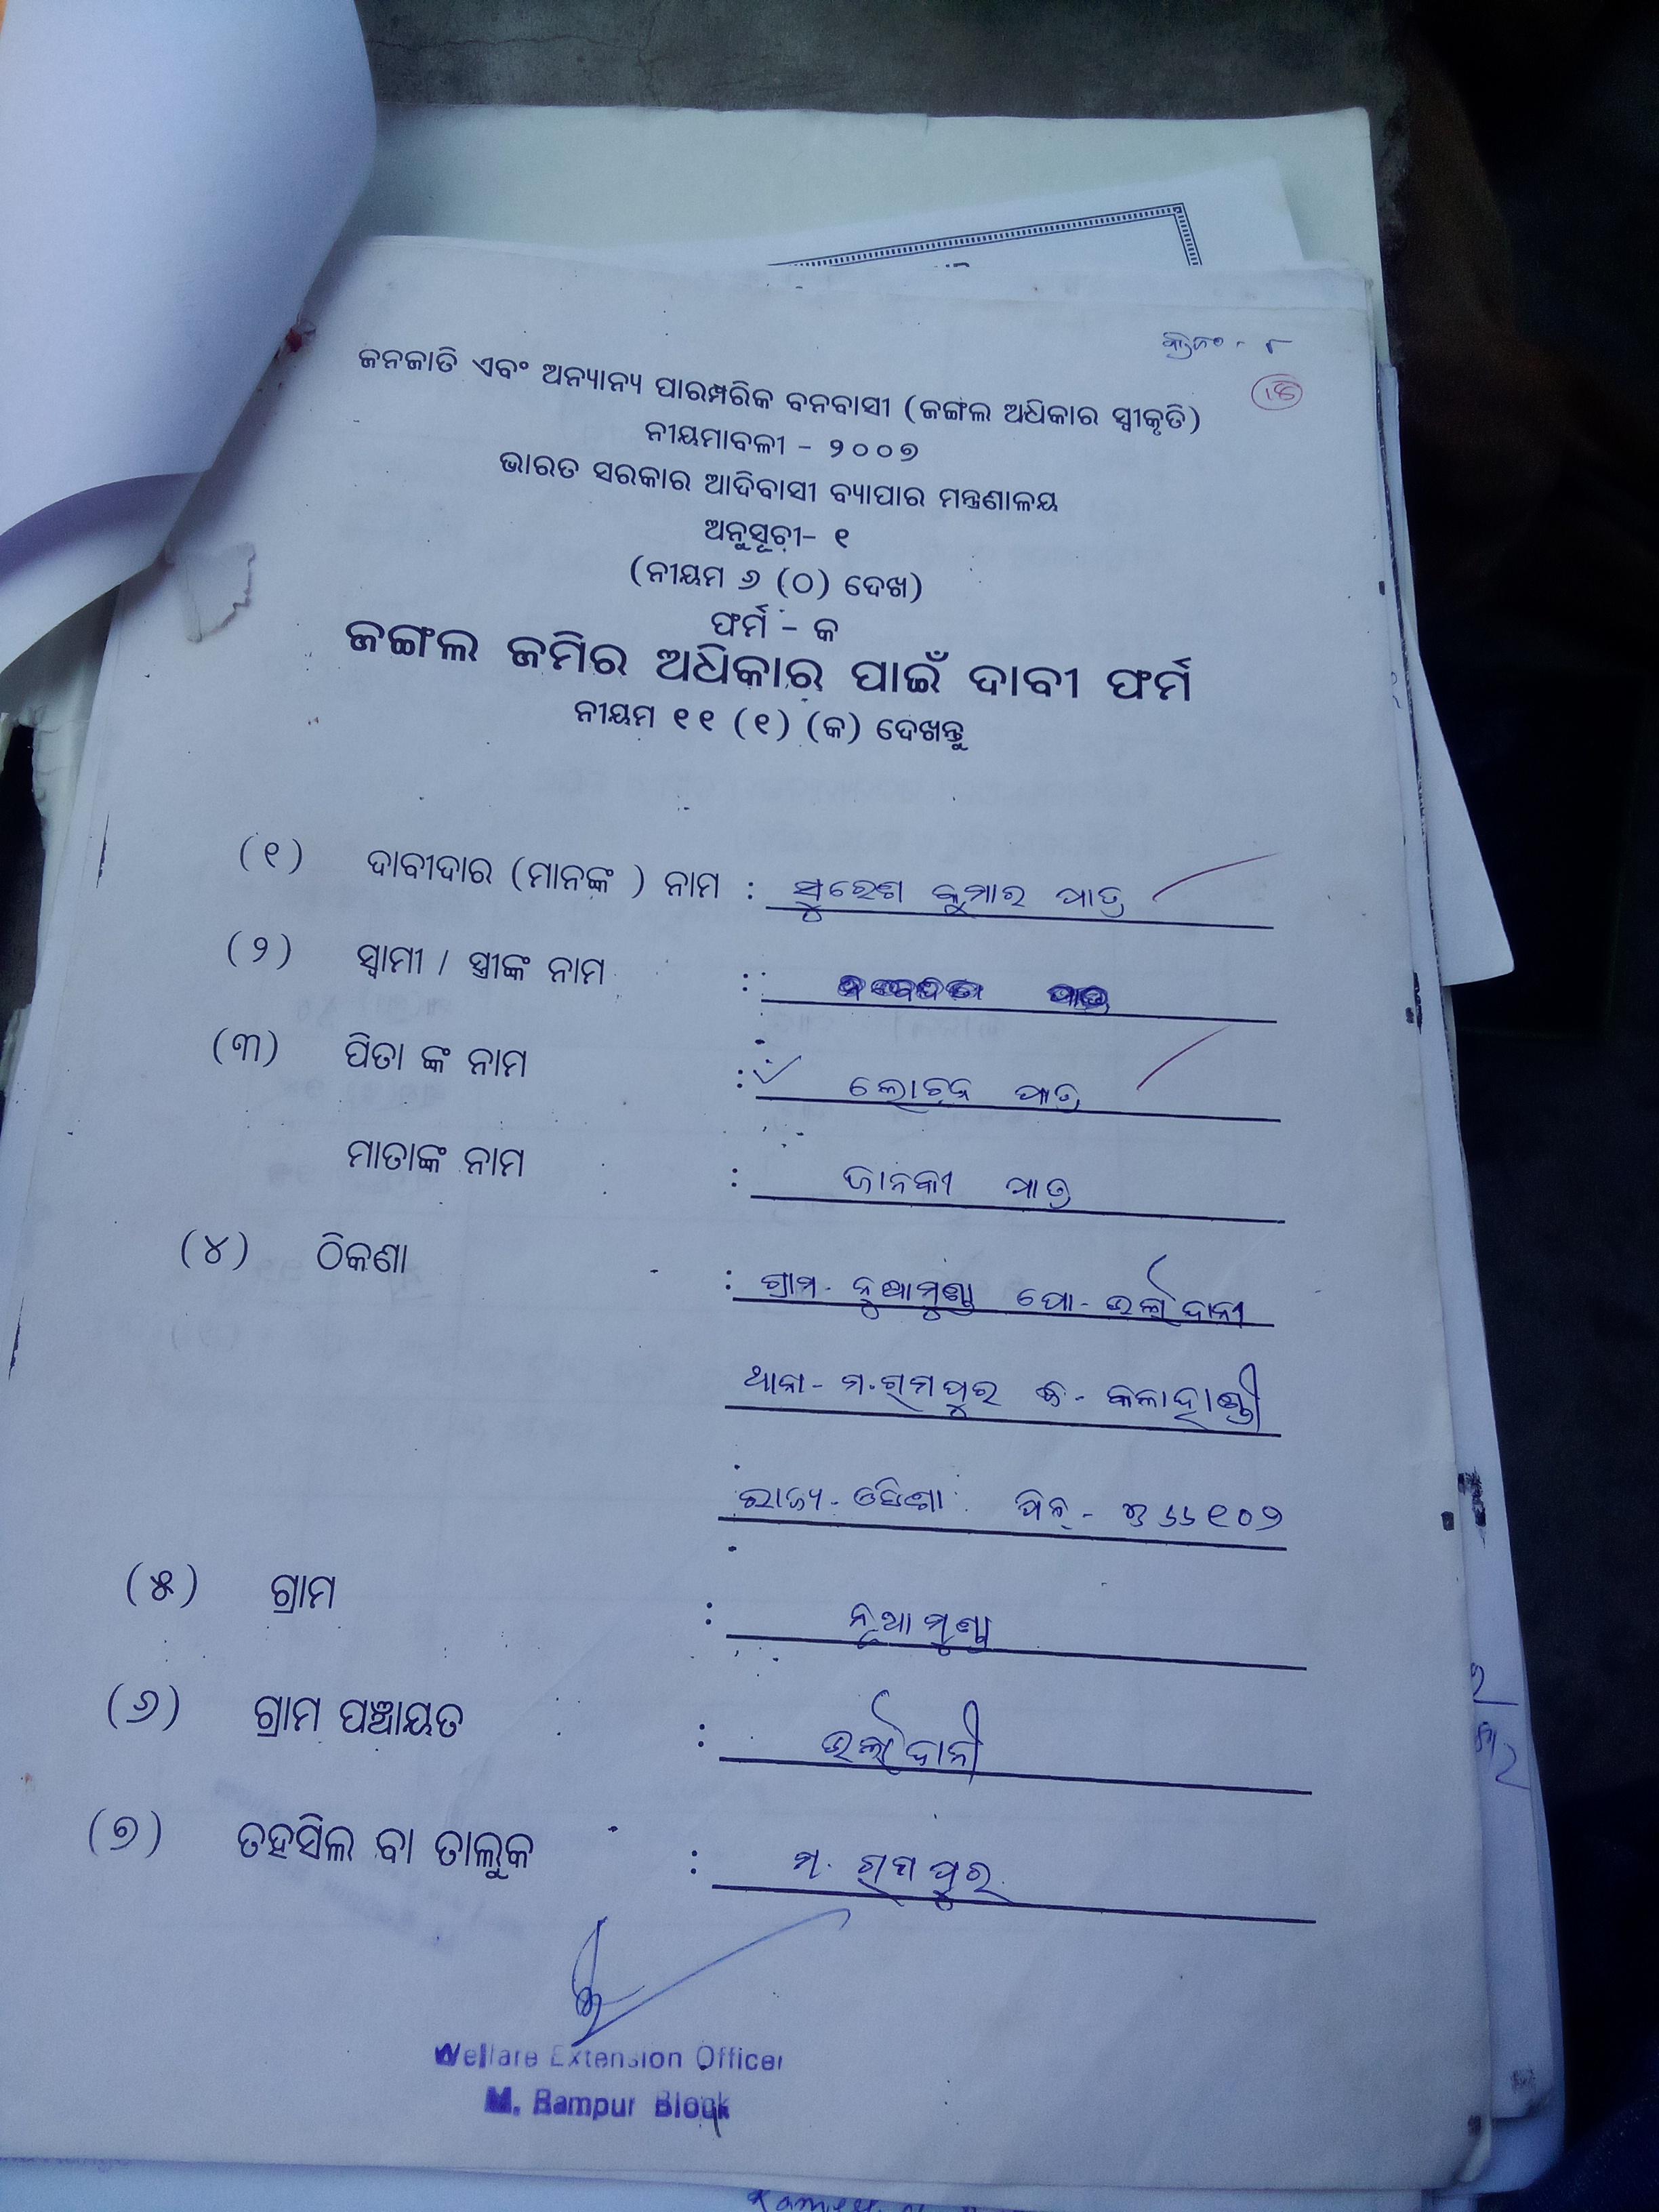 ଜନଜାତି ଏବଂ ଅନ୍ୟାନ୍ୟ ପାରମ୍ପରିକ ବନବାସୀ (ଜଙ୍ଗଲ ଅଧିକାର ସ୍ୱୀକୃତି)
ନୀୟମାବଳୀ - ୨୦୦୭
ଭାରତ ସରକାର ଆଦିବାସୀ ବ୍ୟାପାର ମନ୍ତ୍ରଣାଳୟ
ଅନୁସୂଚୀ- ୧
(ନୀୟମ ୬ (ଠ) ଦେଖ)
ଫର୍ମ - କ
ଜଙ୍ଗଲ ଜମିର ଅଧିକାର ପାଇଁ ଦାବୀ ଫର୍ମ
ନୀୟମ ୧୧ (୧) (କ) ଦେଖନ୍ତୁ
(୧) ଦାବୀଦାର (ମାନଙ୍କ ) ନାମ : ସୁରେଶ କୁମାର ପାତ୍ର
(୨) ସ୍ୱାମୀ / ସ୍ତ୍ରୀଙ୍କ ନାମ : ପାତ୍ର
(୩) ପିତା ଙ୍କ ନାମ : ଲୋଚନ ପାତ୍ର
ମାତାଙ୍କ ନାମ : ଜାନକୀ ପାତ୍ର
(୪) ଠିକଣା : ଗ୍ରାମ- ନୁଆମୁଣ୍ଡା ପୋ-
ଥାନା- ମ.ରାମପୁର ଜି- କଳାହାଣ୍ଡୀ
ରାଜ୍ୟ- ଓଡିଶା ପିନ୍ - ୭୬୬୧୦୨
(୫) ଗ୍ରାମ : ନୂଆମୁଣ୍ଡା
(୬) ଗ୍ରାମ ପଞ୍ଚାୟତ :
(୭) ତହସିଲ ବା ତାଲୁକ : ମ. ରାମପୁର
Welfare Extension Officer
M. Rampur Block